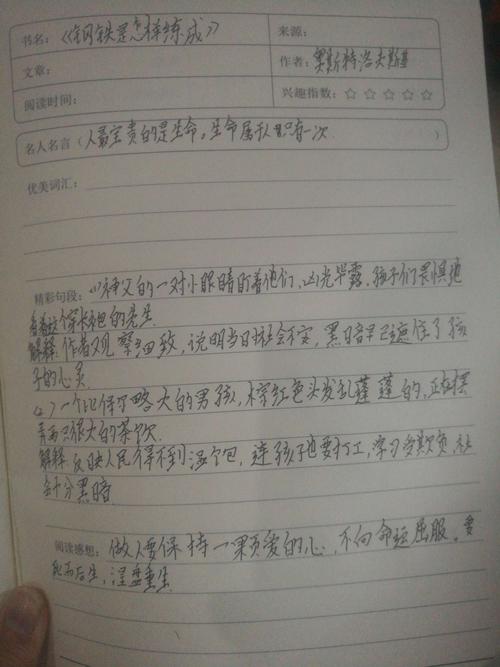 书名：《钢铁是怎样练成》 来源：
文章： 作者：奥斯特洛夫斯基
阅读时间： 兴趣指数：☆ ☆ ☆ ☆ ☆
名人名言（人最宝贵的是生命，生命属于人只有一次 ）
优美词汇：
精彩句段：(1)神父的一对小眼睛盯着他们，凶光毕露，孩子们畏惧地
看着这个穿长袍的先生
解释：作者观察细致，说明当时社会不安，黑暗早已遮住了孩
子的心灵
(2)一个比保尔略大的男孩，棕红色头发乱蓬蓬的，正在摆
弄两只很大的茶炊
解释：反映人民得不到温饱，连孩子也要打工，学习多欺负 社
会十分黑暗
阅读感想：做人要保持一颗爱的心，不向命运屈服，要
死而后生，涅盘重生